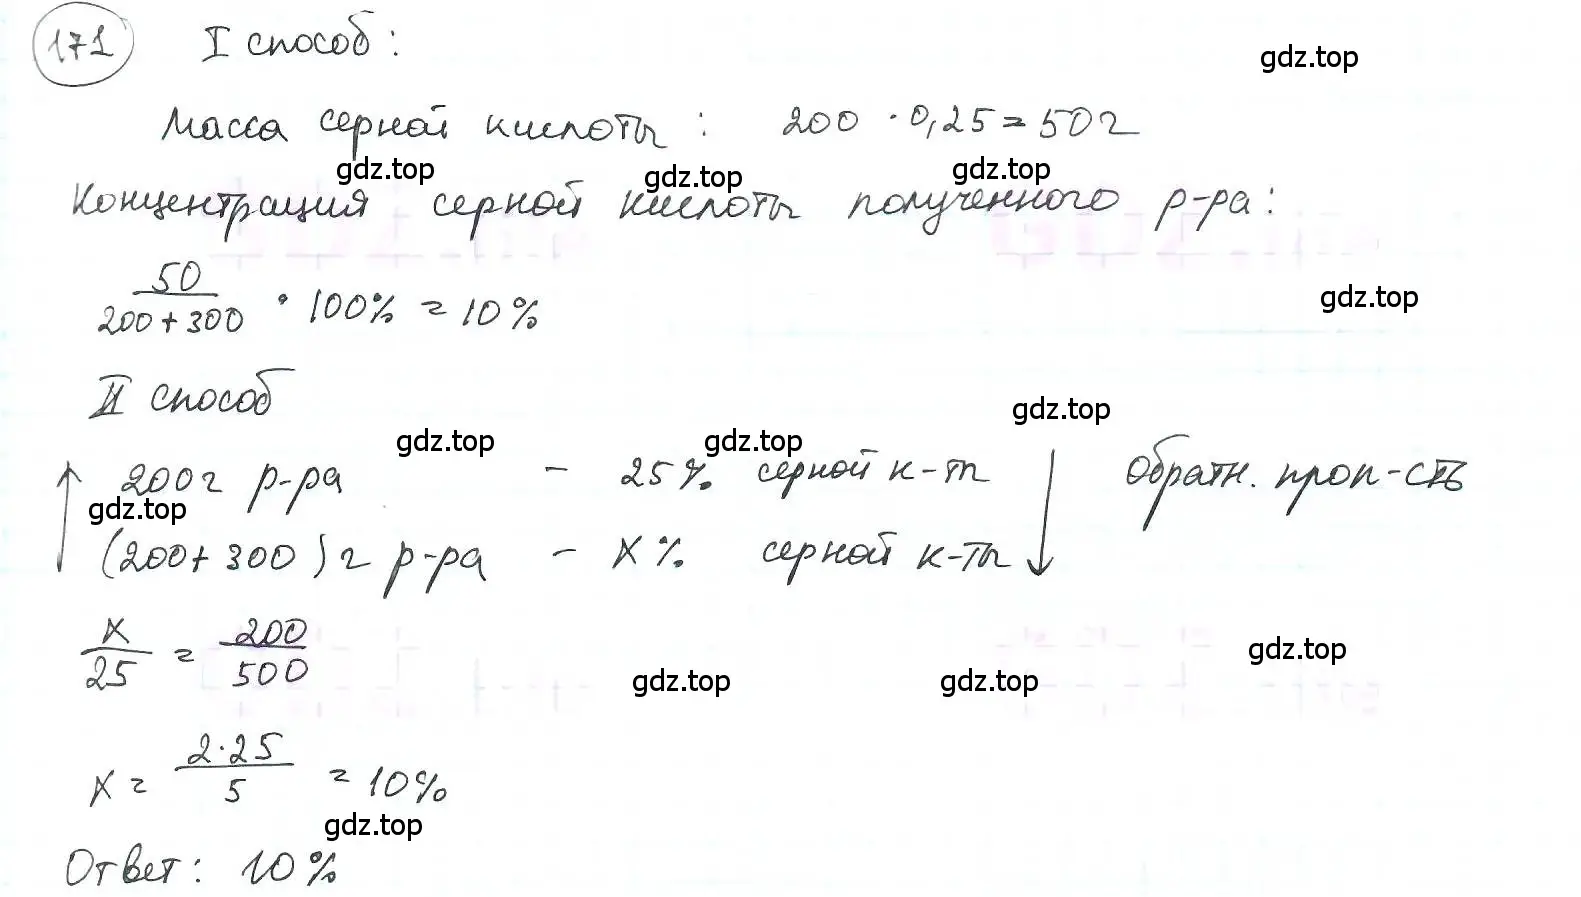 171 I способ:
gdz.top
Масса серной кислоты: 200 · 0,25 = 50 г
gdz.top gdz.top gdz.top
Концентрация серной кислоты полученного р-ра:
50 / (200 + 300) · 100% = 10%
gdz.top
II способ
gdz.top gdz.top gdz.top
↑ 200 г р-ра – 25% серной к-ты ↓ обратн. проп-сть
gdz.top
(200 + 300) г р-ра – x% серной к-ты
x/25 = 200/500
gdz.top gdz.top gdz.top
x = 2·25/5 = 10%
gdz.top
Ответ: 10%